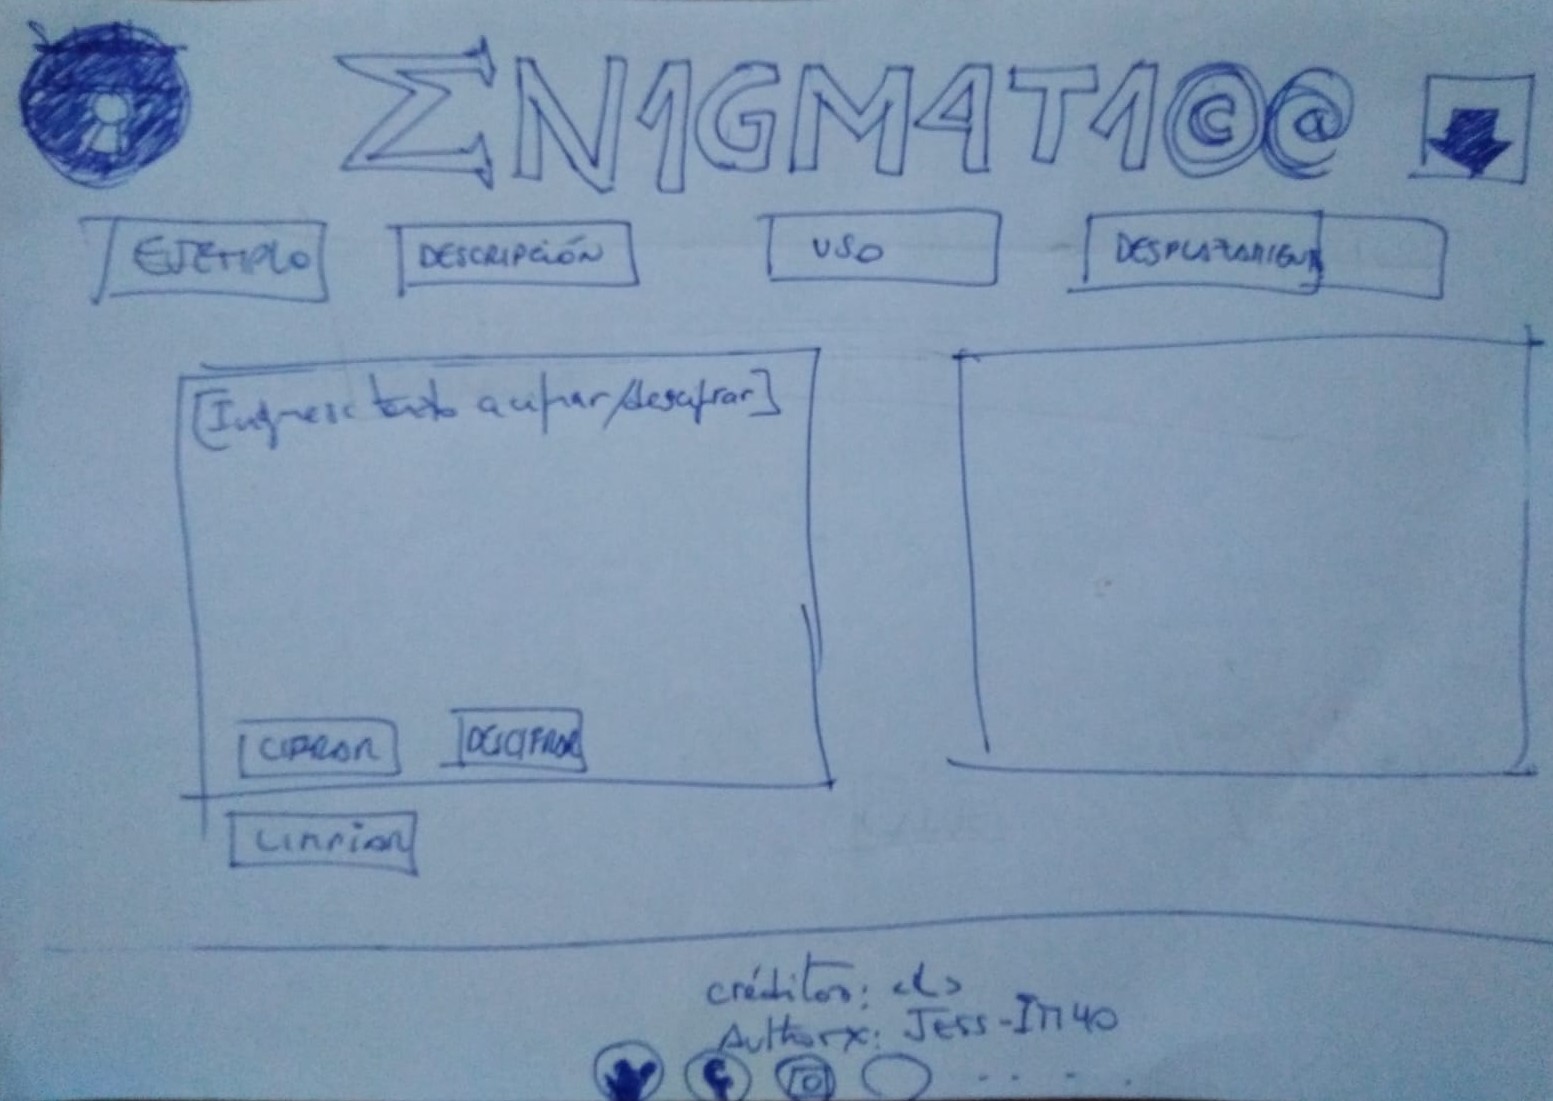 ΣN1GM4T1©@
EJEMPLO DESCRIPCIÓN USO DESPLAZAMIENT
[Ingrese texto a cifrar/descifrar]
CIFRAR DESCIFRAR
LIMPIAR
créditos: <L>
Authorx: JESS-IM40